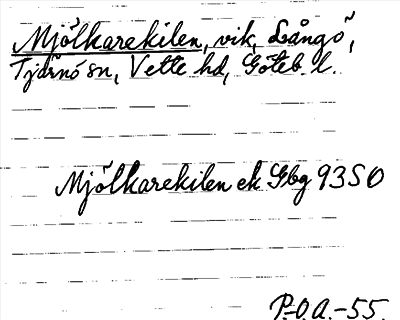 Mjölkarekilen, vik, Långö,
Tjärnö sn, Vette hd, Göteb. l.
Mjölkarekilen ek Gbg 93SO
P.-O.A.-55.